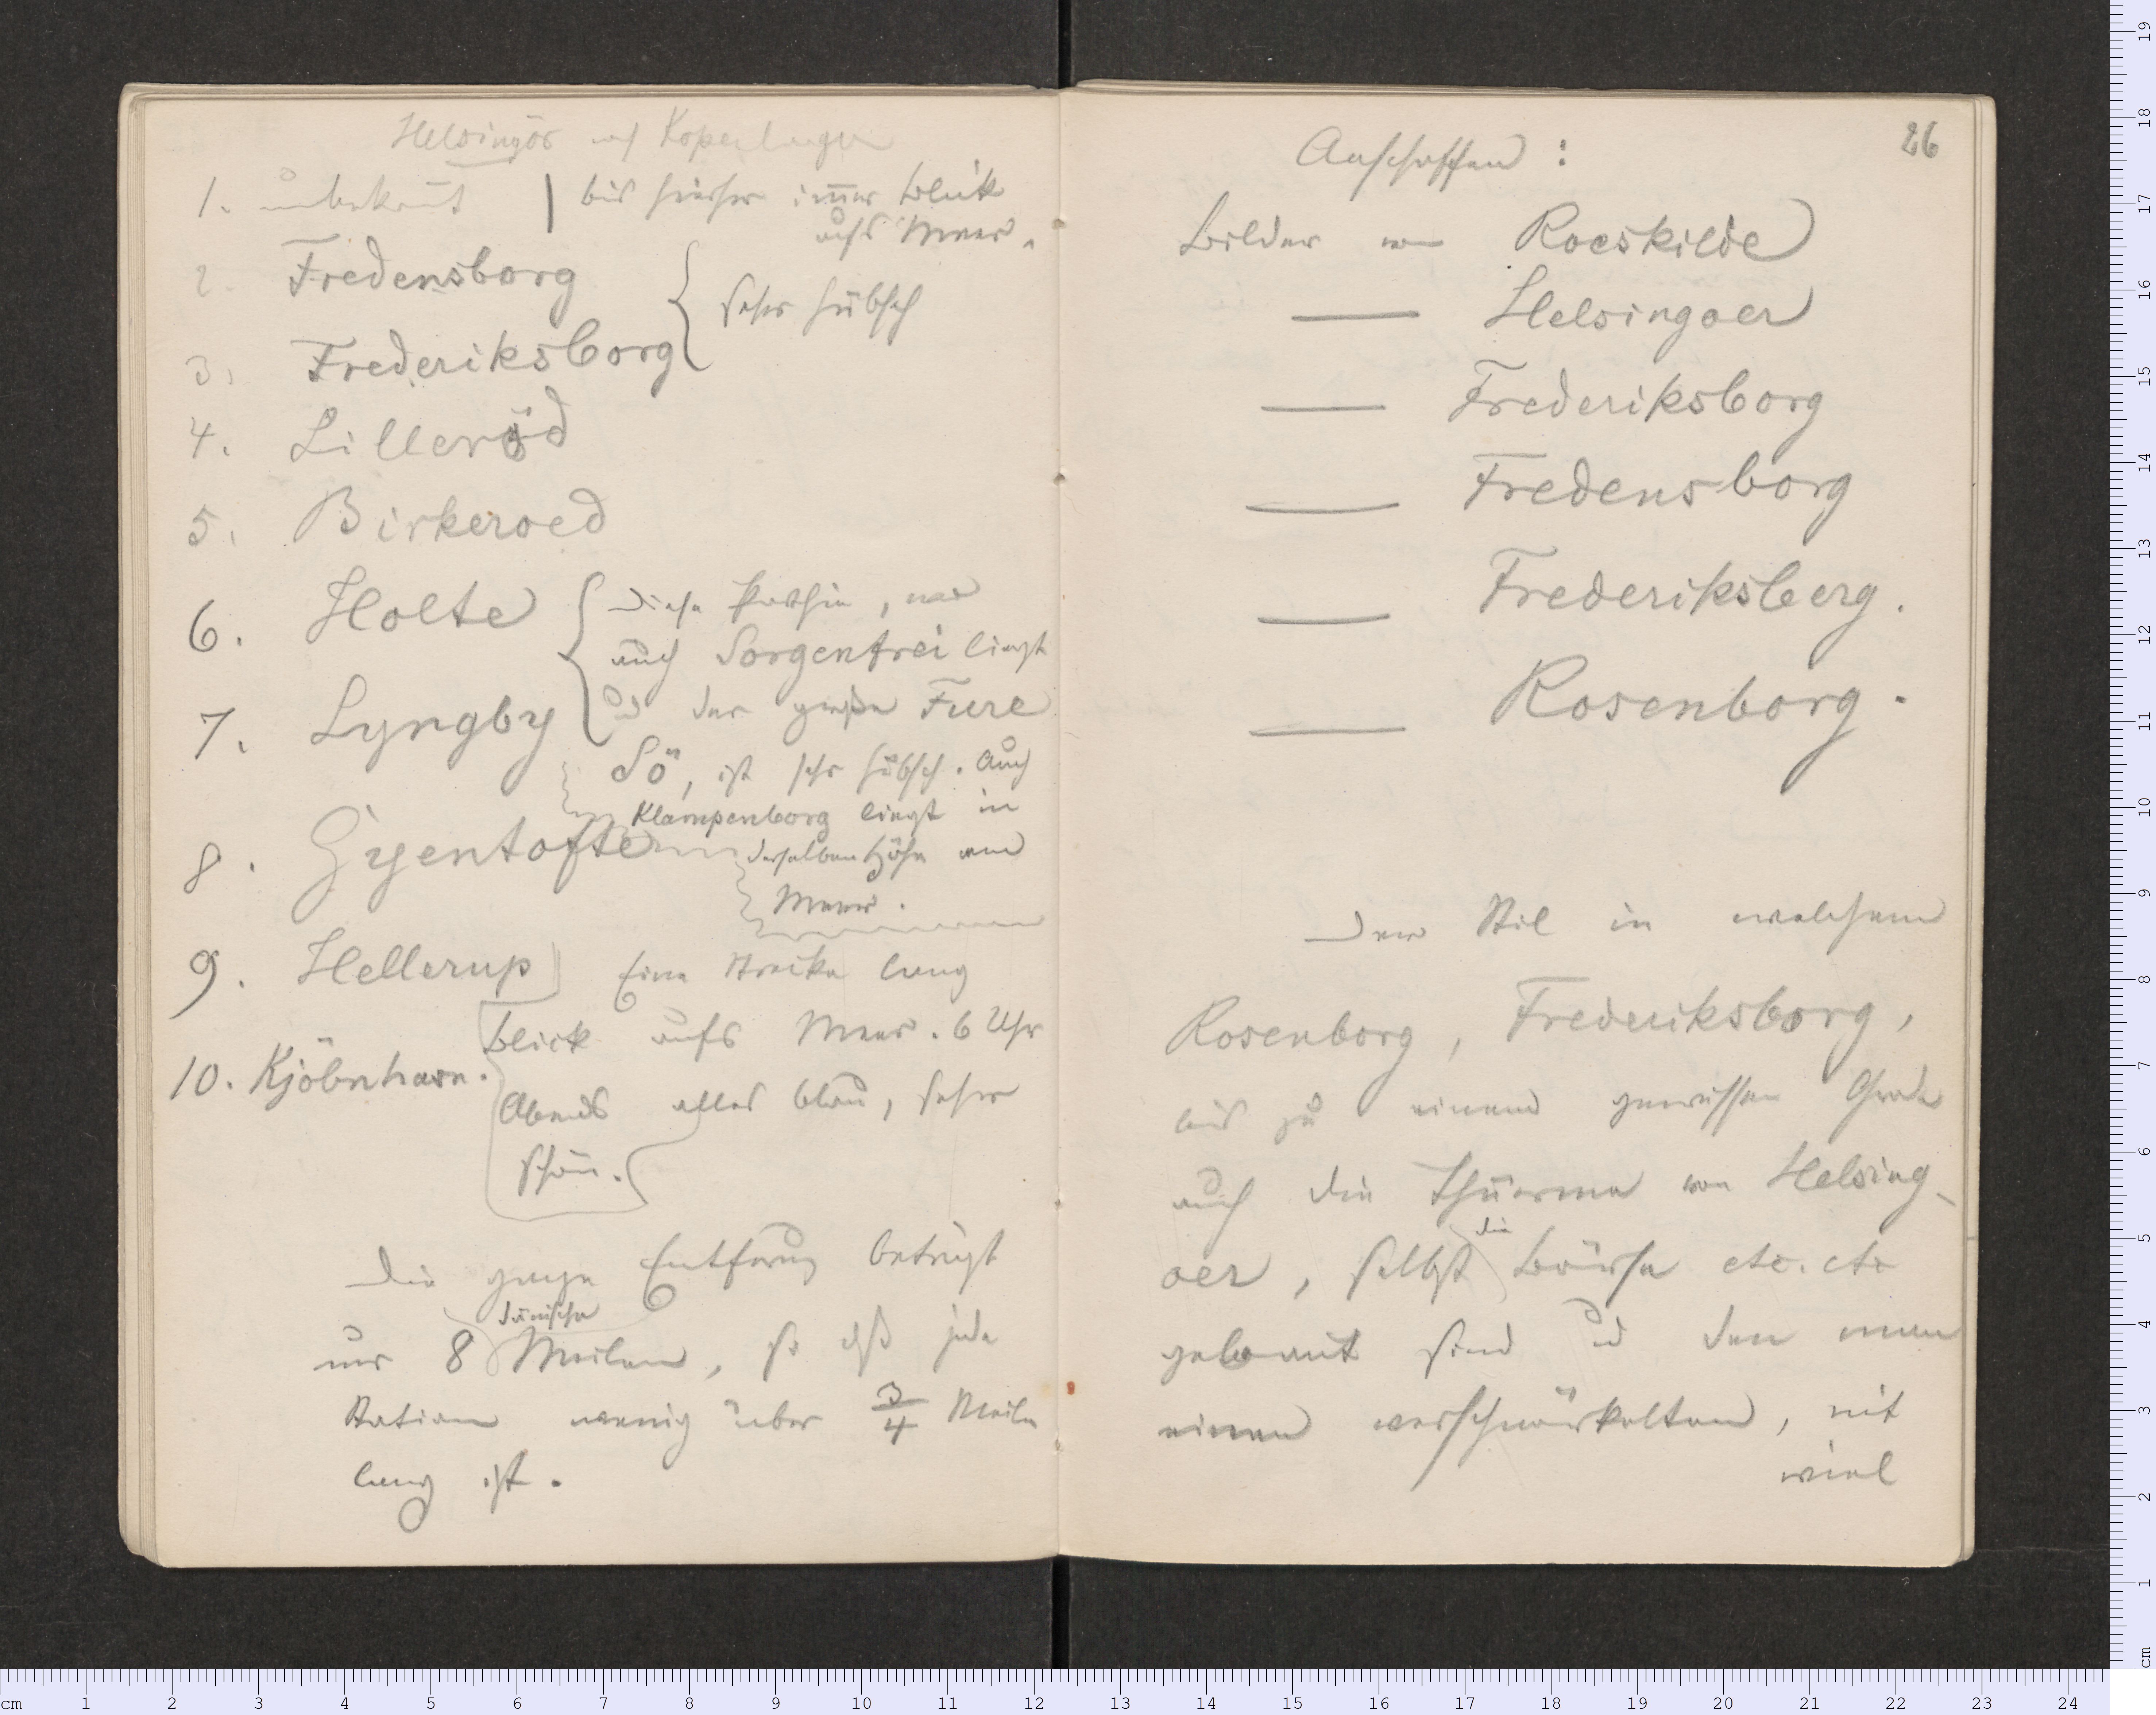 Helsingör nach Kopenhagen
1. unbekannt | bis hierher immer Blick
aufs Meer.
2. Fredensborg
sehr hübsch
3. Frederiksborg
4. Lilleröd
5. Birkeroed
6. Holte
Diese Parthie, wo
auch Sorgenfrei liegt
7. Lyngby
u der große Fure
Sö, ist sehr hübsch. Auch
Klampenborg liegt in
8. Gyentofte
derselben Höhe am
Meer.
9. Hellerup
Eine Strecke lang
Blick aufs Meer. 6 Uhr
10. Kjöbnhavn.
Abends alles blau, sehr
schön.
Die ganze Entfernung beträgt
dänische
nur 8 Meilen, so daß jede
Station wenig über 3/4 Meile
lang ist.
26
Anschaffen:
Bilder von Roeskilde
— Helsingoer
— Frederiksborg
— Fredensborg
— Frederiksberg.
— Rosenborg.
Der Stil in welchem
Rosenborg, Frederiksborg,
bis zu einem gewissen Grade
auch die Thürme von Helsing-
die
oer, selbst Börse etc. etc
gebaut sind u den man
einen verschnörkelten, mit
viel